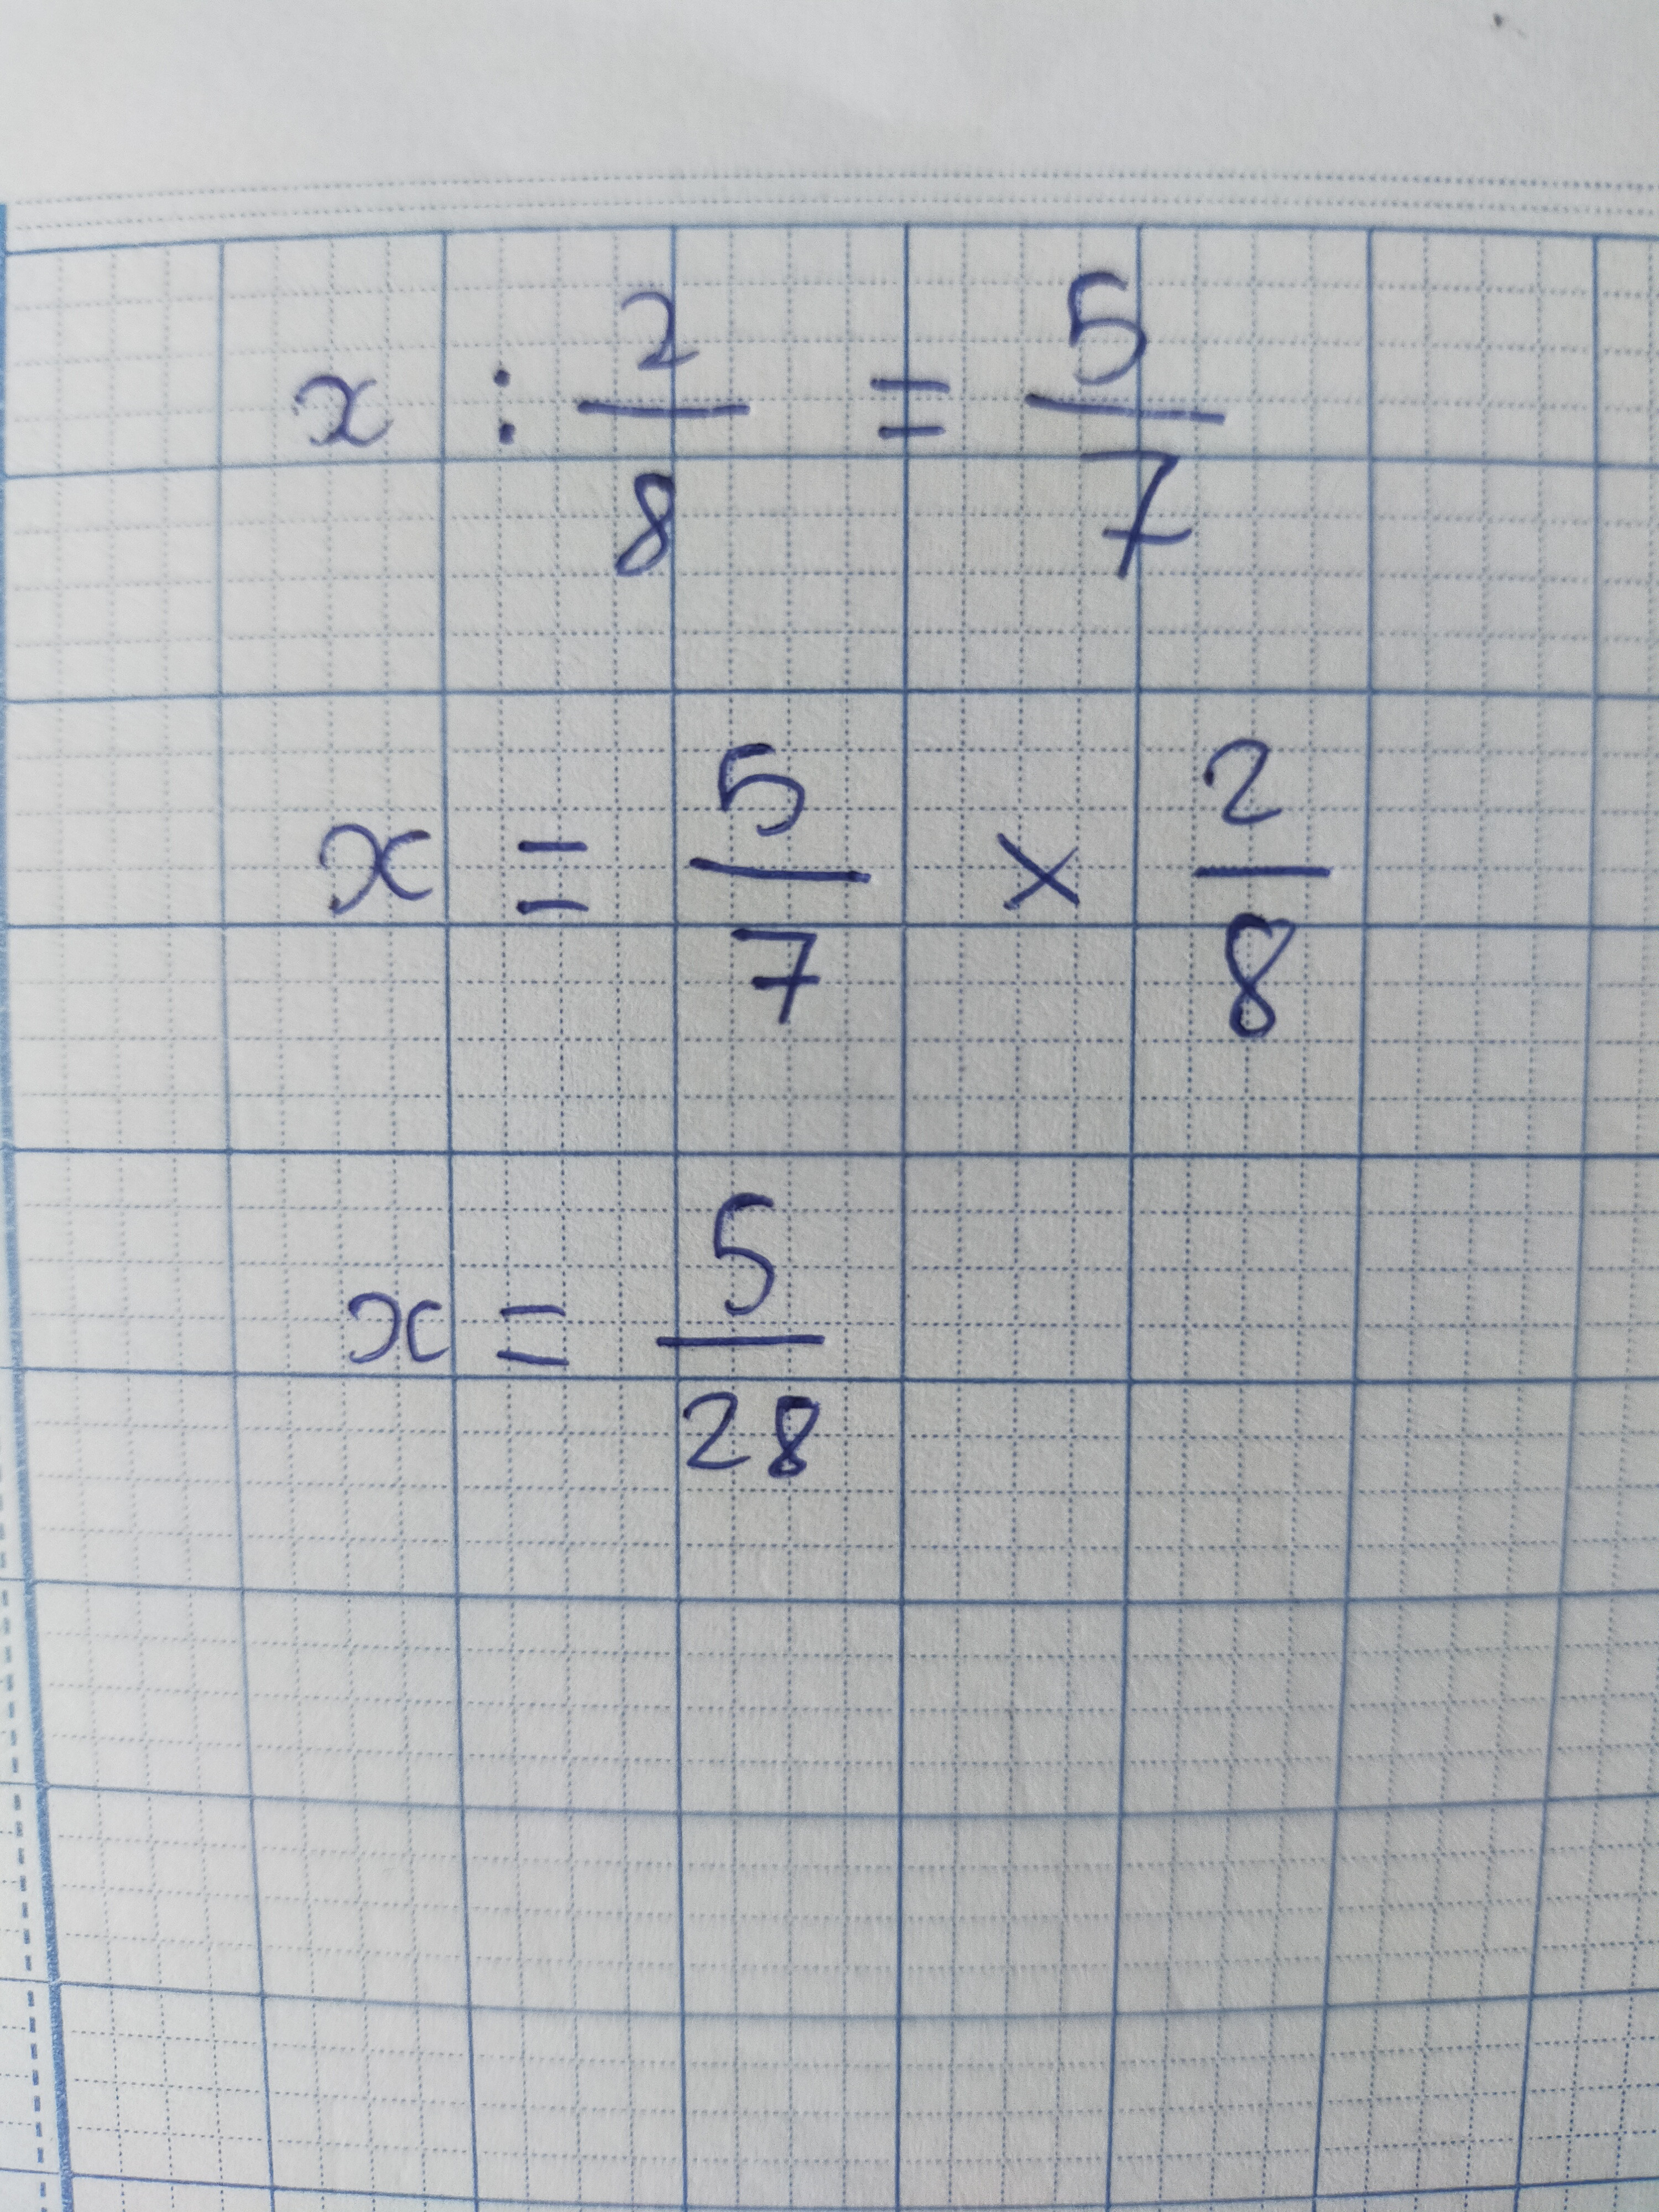 x : 2/8 = 5/7
x = 5/7 × 2/8
x = 5/28